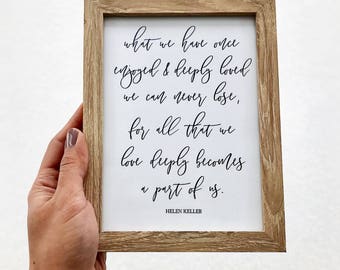 what we have once
enjoyed & deeply loved
we can never lose,
for all that we
love deeply becomes
a part of us.
HELEN KELLER